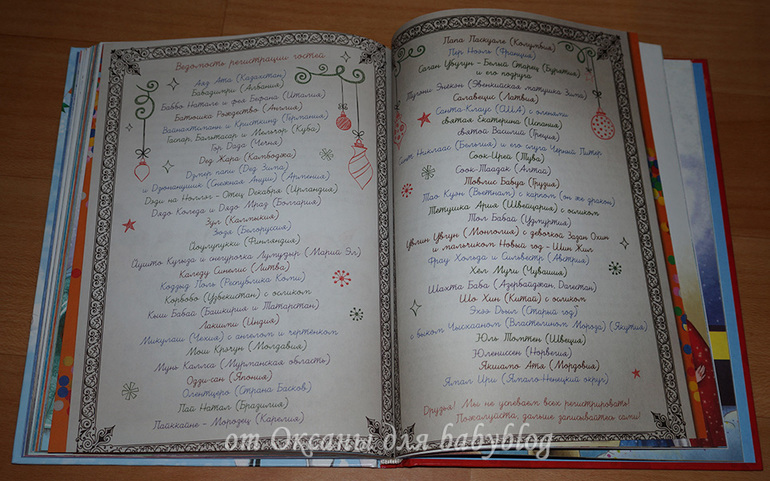 Ведомость регистрации гостей
Аяз Ата (Казахстан)
Бабадимри (Албания)
Баббо Натале и фея Бефана (Италия)
Батюшка Рождество (Англия)
Вайнахтсманн и Кристкинд (Германия)
Гаспар, Бальтасар и Мельчор (Куба)
Гор Дада (Чечня)
Дед Жара (Камбоджа)
Дзмер папи (Дед Зима)
и Дзюнанушик (Снежная Ануш) (Армения)
Дэди на Ноллэг - Отец Декабря (Ирландия)
Дядо Коледа и Дядо Мраз (Болгария)
Зул (Калмыкия)
Зюзя (Белоруссия)
Йоулупукки (Финляндия)
Йушто Кугыза и снегурочка Лумудыр (Марий Эл)
Каледу Сянелис (Литва)
Кодзыд Поль (Республика Коми)
Корбобо (Узбекистан) с осликом
Кыш Бабай (Башкирия и Татарстан)
Лакшми (Индия)
Микулаш (Чехия) с ангелом и чертёнком
Мош Крэчун (Молдавия)
Мунь Каллса (Мурманская область)
Одзи-сан (Япония)
Олентцеро (Страна Басков)
Пай Натал (Бразилия)
Паккайне - Морозец (Карелия)
Папа Паскуале (Колумбия)
Пер Ноэль (Франция)
Саган Убугун - Белый Старец (Бурятия)
и его подруга
Тугэни Энекен (Эвенкийская матушка Зима)
Салавецис (Латвия)
Санта-Клаус (США) с оленями
святая Екатерина (Испания)
святой Василий (Греция)
Синт Никлаас (Бельгия) и его слуга Черный Питер
Соок-Ирей (Тува)
Соок-Таадак (Алтай)
Товлис Бабуа (Грузия)
Тао Куэн (Вьетнам) с карпом (он же дракон)
Тетушка Ария (Швейцария) с осликом
Тол Бабай (Удмуртия)
Увлин Увгун (Монголия) с девочкой Зазан Охин
и мальчиком Новый год - Шин Жил
Фрау Хольда и Сильвестр (Австрия)
Хел Мучи (Чувашия)
Шахта Баба (Азербайджан, Дагестан)
Шо Хин (Китай) с осликом
Эхээ Дьыл (Старый год)
с быком Чысхааном (Властелином Мороза) (Якутия)
Юль Томтен (Швеция)
Юлениссен (Норвегия)
Якшамо Атя (Мордовия)
Ямал Ири (Ямало-Ненецкий округ)
Друзья! Мы не успеваем всех регистрировать!
Пожалуйста, дальше записывайтесь сами!
от Оксаны для babyblog